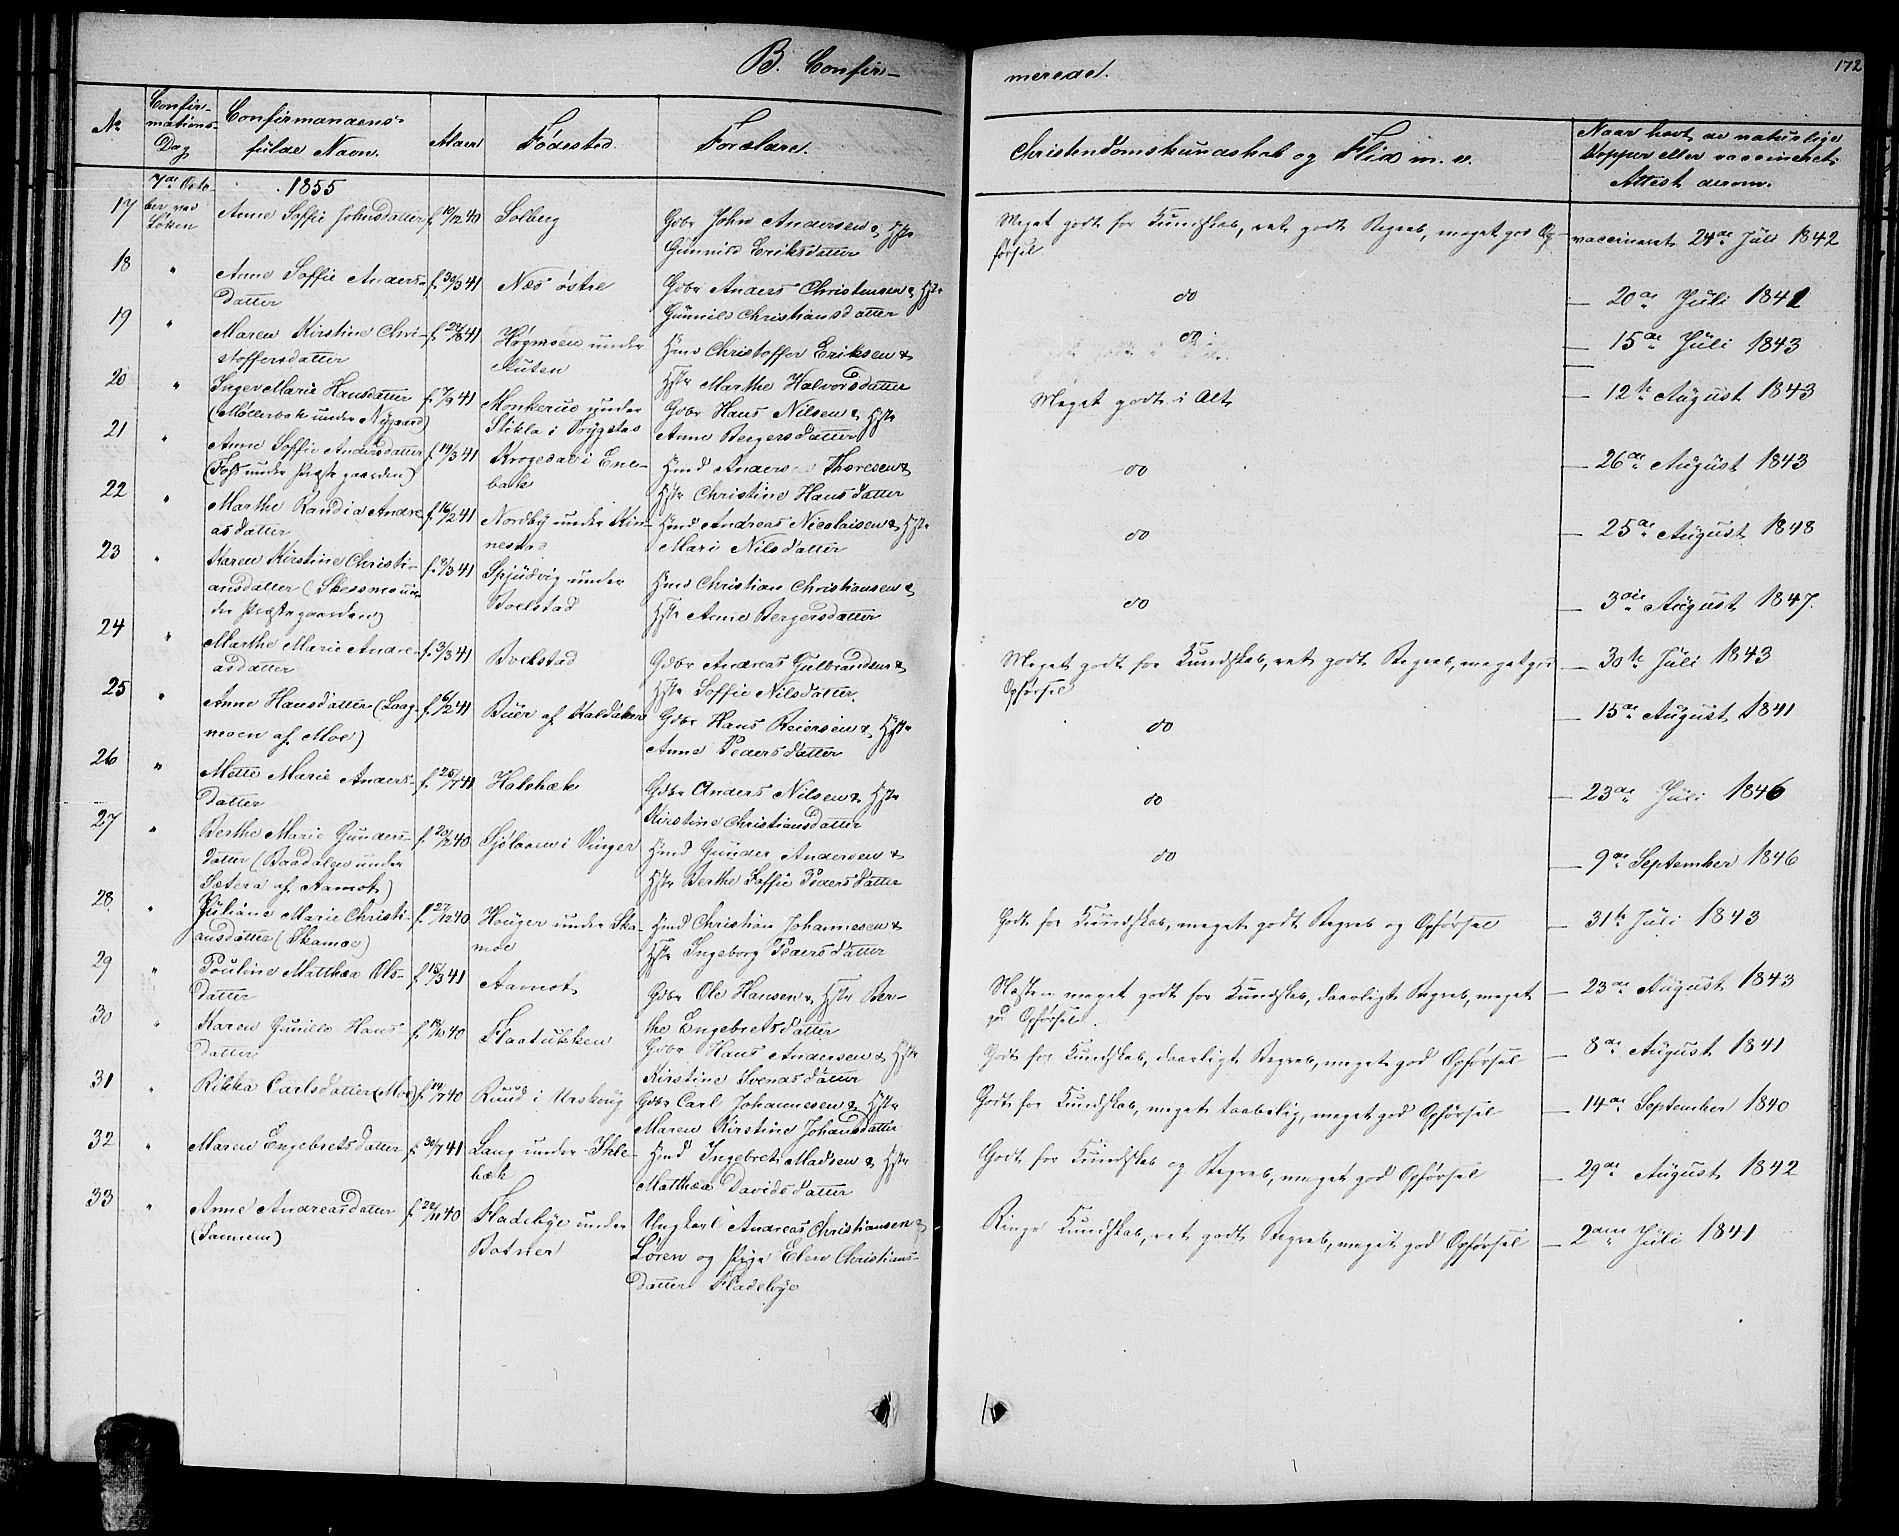 B. Confir-
merede.
172
No
Confir-
mations-
Dag
Confirmandens
fulde Navn.
Alder
Fødested.
Forældre.
Christendomskundskab og Flid m. v.
Naar havt de naturlige
Kopper eller vaccineret
Attest derom.
7de Octo-
ber ved
Løken
1855
17 Anne Soffie Johnsdatter f. 10/12 40 Solberg Gdbr John Andersen & Hstr
Gunnild Eriksdatter
Meget godt for Kundskab, ret godt Begreb, meget god Op-
førsel
vaccineret 24de Juli 1842
18 " Anne Soffie Anders-
datter f. 30/3 41 Næs østre Gdbr Anders Christensen & Hstr
Gunnild Christiansdatter
do
— 20de Juli 1841
19 " Maren Kirstine Chri-
stoffersdatter f. 24/8 41 under Hmd Christoffer Eriksen &
Hstr Marthe Halvorsdatter
do
— 15de Juli 1843
20 " Inger Marie Hansdatter
(Møllerbak under Nygaard) f. 7/9 41 Monkerud under
Stikla i Trygstad Gdbr Hans Nilsen & Hstr
Anne Bergersdatter
Meget godt i Alt
— 12te August 1843
21 " Anne Soffie Andersdatter
( under Præstegaarden) f. 14/3 41 Krogedal i Ene-
bak Hmd Anders Thoresen &
Hstr Christine Hansdatter
do
— 26de August 1843
22 " Marthe Randia Andre-
asdatter f. 16/2 41 Nordby under Kin-
nestad Hmd Andreas Nicolaisen & Hstr
Mari Nilsdatter
do
— 25de August 1848
23 " Karen Kirstine Christi-
ansdatter (Skesmo un-
der Præstegaarden) f. 9/3 41 Spjudvig under
Boelstad Hmd Christian Christiansen &
Hstr Anne Bergersdatter
do
— 3die August 1847.
24 " Marthe Marie Andre-
asdatter f. 3/3 41 Boelstad Gdbr Andreas Gulbrandsen &
Hstr Soffie Nilsdatter.
Meget godt for Kundskab, ret godt Begreb, meget god
Opførsel
— 30te Juli 1843
25 " Anne Hansdatter (Laag-
moen af Moe) f. 6/2 41 Buer af Kaldaker Gdbr Hans Reiersen & Hstr
Anne Pedersdatter
do
— 15de August 1841
26 " Mette Marie Anders-
datter f. 25/7 41 Holbæk Gdbr Anders Nilsen & Hstr
Kirstine Christiansdatter
do
— 23de Juli 1846
27 " Berthe Marie Gunders-
datter (Baadalgen under
Sætera af Aamot) f. 23/12 40 Sjølaaen i Vinger Hmd Gunder Andersen &
Hstr Berthe Soffie Pedersdatter
do
— 9de September 1846
28 " Juliane Marie Christi-
ansdatter (Skamoe) f. 27/12 40 Houger under Ska-
moe Hmd Christian Johannesen &
Hstr Ingeborg Pedersdatter
Godt for Kundskab, meget godt Begreb og Opførsel
— 31te Juli 1843
29 " Pouline Matthea Ols-
datter f. 15/3 41 Aamot Gdbr Ole Hansen & Hstr Ber-
the Engebretsdatter
Næsten meget godt for Kundskab, daarligt Begreb, meget
god Opførsel.
— 23de August 1843
30 " Karen Gunilde Hans
datter f. 40 Flaatukken Gdbr Hans Andersen & Hstr
Kirstine Svendsdatter
Godt for Kundskab, daarligt Begreb, meget god Opførsel
— 8de August 1841
31 " Rikka Carlsdatter (Moe) f. 14/7 40 Ruud i Urskoug Gdbr Carl Johannesen & Hstr
Maren Kirstine Johansdatter
Godt for Kundskab, meget taabelig, meget god Opførsel
— 14de September 1840
32 " Maren Engebretsdatter f. 30/7 41 Lang under Ihle-
bæk Hmd Ingebret Madsen & Hstr
Matthea Davidsdatter
Godt for Kundskab og Begreb, meget god Opførsel
— 29de August 1842
33 " Anne Andreasdatter
(Sannem) f. 22/11 40 Fladebye under
Botner Ungkarl Andreas Christiansen
Løren og Pige Elen Christians-
datter Fladebye
Ringe Kundskab, ret godt Begreb, meget god Opførsel
— 2den Juli 1841